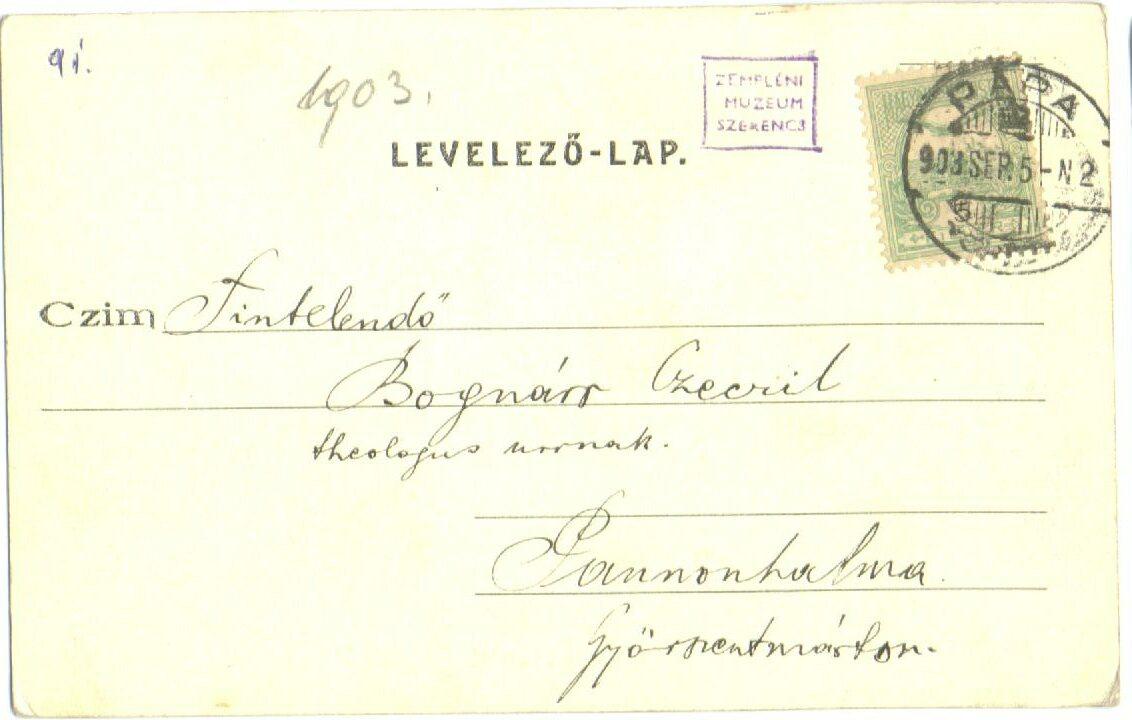 91.
1903.
LEVELEZŐ-LAP.
ZEMPLÉNI
MUZEUM
SZERENCS
PÁPA
903 SEP. 5 - N 2
Czim Tintelendő
Bognárr Czeczil
theologus urnak.
Pannonhalma.
Győrszentmárton.